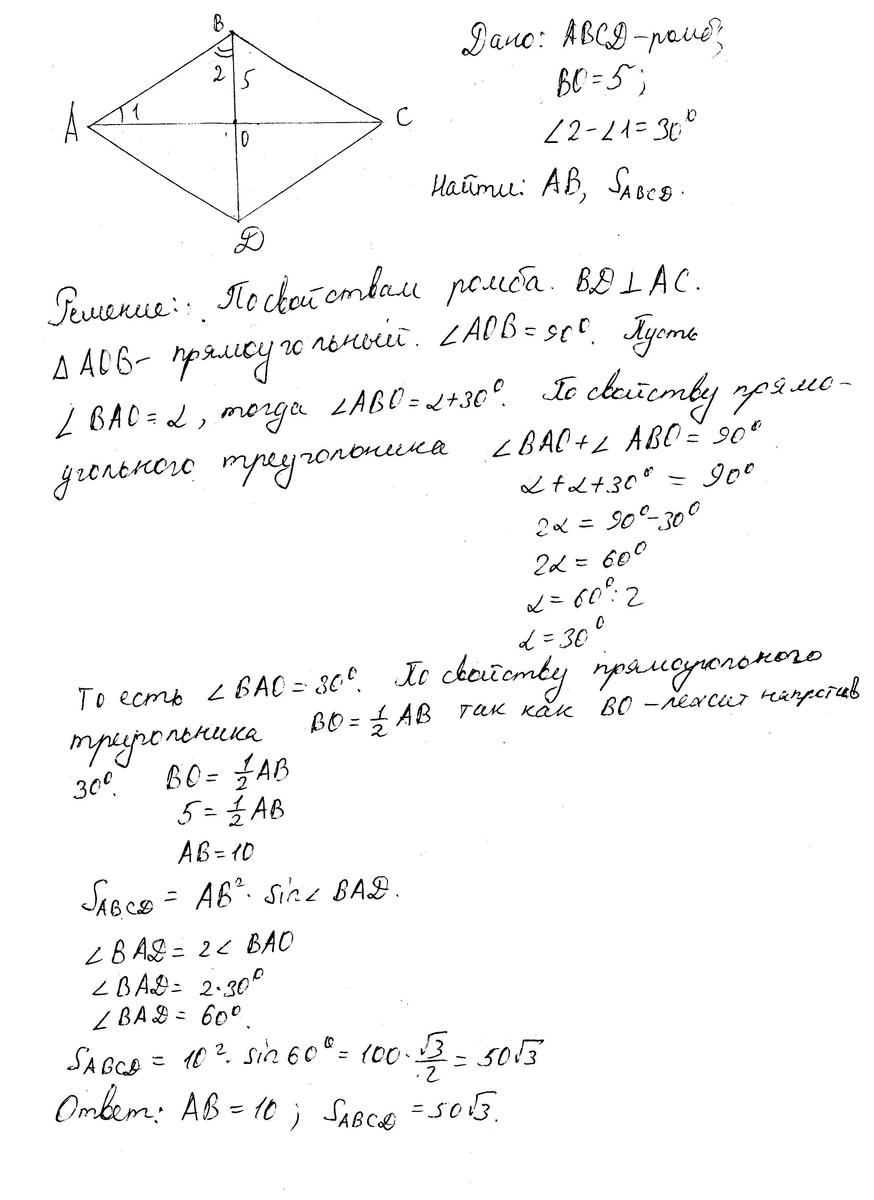 B
2 5
A 1 O C
D
Дано: ABCD-ромб;
BO=5;
∠2-∠1=30°
Найти: AB, S_ABCD.
Решение:. По свойствам ромба. BD⊥AC.
ΔAOB- прямоугольный. ∠AOB=90°. Пусть
∠BAO=α, тогда ∠ABO=α+30°. По свойству прямо-
угольного треугольника ∠BAO+∠ABO=90°
α+α+30° = 90°
2α = 90°-30°
2α = 60°
α = 60°:2
α=30°
То есть ∠BAO=30°. По свойству прямоугольного
треугольника BO=1/2 AB так как BO -лежит напротив
30°. BO=1/2 AB
5=1/2 AB
AB=10
S_ABCD = AB²· sin∠BAD.
∠BAD=2∠BAO
∠BAD= 2·30°
∠BAD= 60°.
S_ABCD = 10²· sin60°=100·√3/2=50√3
Ответ: AB=10; S_ABCD=50√3.